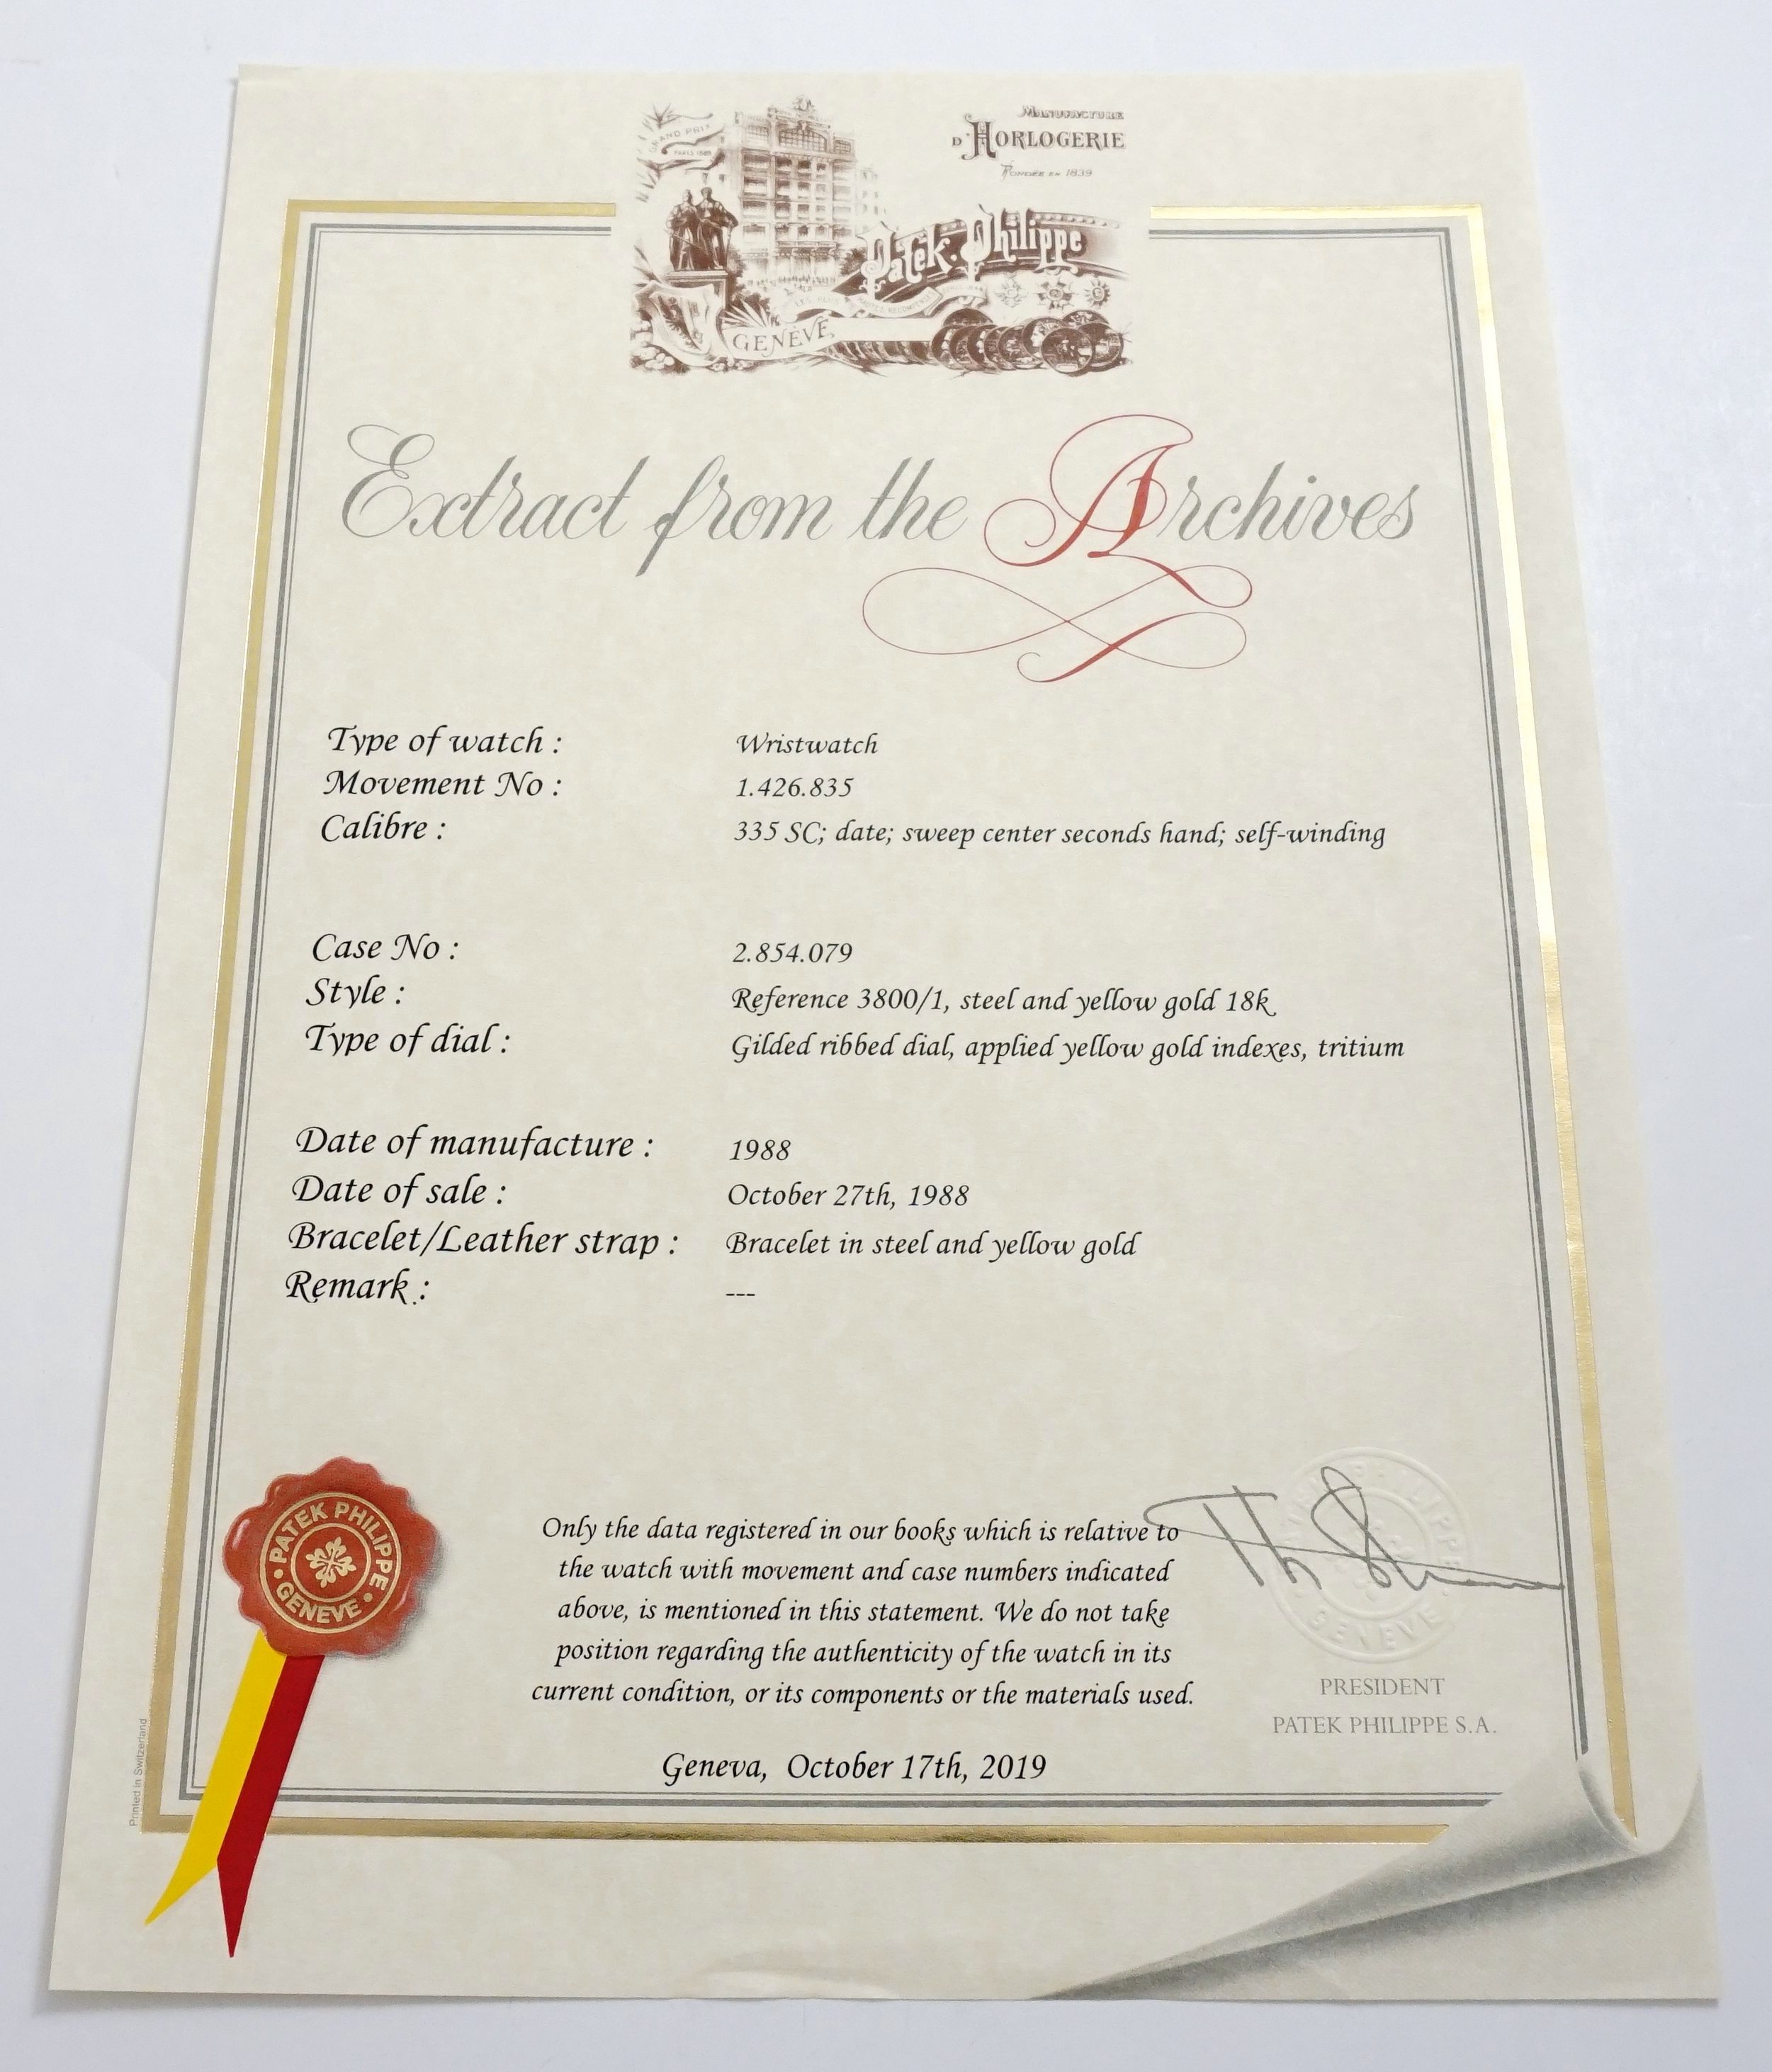 GRAND PRIX
PARIS 1889
MANUFACTURE
D'HORLOGERIE
FONDÉE EN 1839
Patek Philippe
GENÈVE
Extract from the Archives
Type of watch : Wristwatch
Movement No : 1.426.835
Calibre : 335 SC; date; sweep center seconds hand; self-winding
Case No : 2.854.079
Style : Reference 3800/1, steel and yellow gold 18k
Type of dial : Gilded ribbed dial, applied yellow gold indexes, tritium
Date of manufacture : 1988
Date of sale : October 27th, 1988
Bracelet/Leather strap : Bracelet in steel and yellow gold
Remark : ---
PATEK PHILIPPE
GENEVE
Only the data registered in our books which is relative to
the watch with movement and case numbers indicated
above, is mentioned in this statement. We do not take
position regarding the authenticity of the watch in its
current condition, or its components or the materials used.
GENEVE
PRESIDENT
PATEK PHILIPPE S.A.
Geneva, October 17th, 2019
Printed in Switzerland